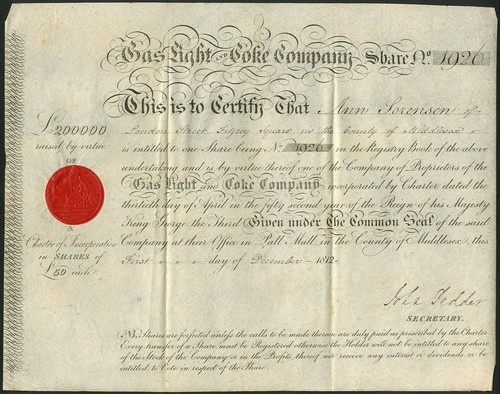 Gas Light AND Coke Company Share No. 1926
This is to Certify That Ann Sorensen of
London Street Fitzroy Square in the County of Middlesex
is intitled to one Share being No. 1926 in the Registry Book of the above
undertaking and is by virtue thereof one of the Company of Proprietors of the
Gas Light and Coke Company incorporated by Charter dated the
thirtieth day of April in the fifty second year of the Reign of his Majesty
King George the Third Given under the Common Seal of the said
Company at their Office in Pall Mall, in the County of Middlesex, this
First day of December 1812.
£200000
raised by virtue
OF
A
Charter of Incorporation
in SHARES of
£50 each
John Pedder
SECRETARY.
NB. Shares are forfeited unless the calls to be made thereon are duly paid as prescribed by the Charter.
Every transfer of a Share must be Registered otherwise the Holder will not be intitled to any share
of the Stock of the Company or in the Profits thereof nor receive any interest or dividends or be
intitled to Vote in respect of the Share